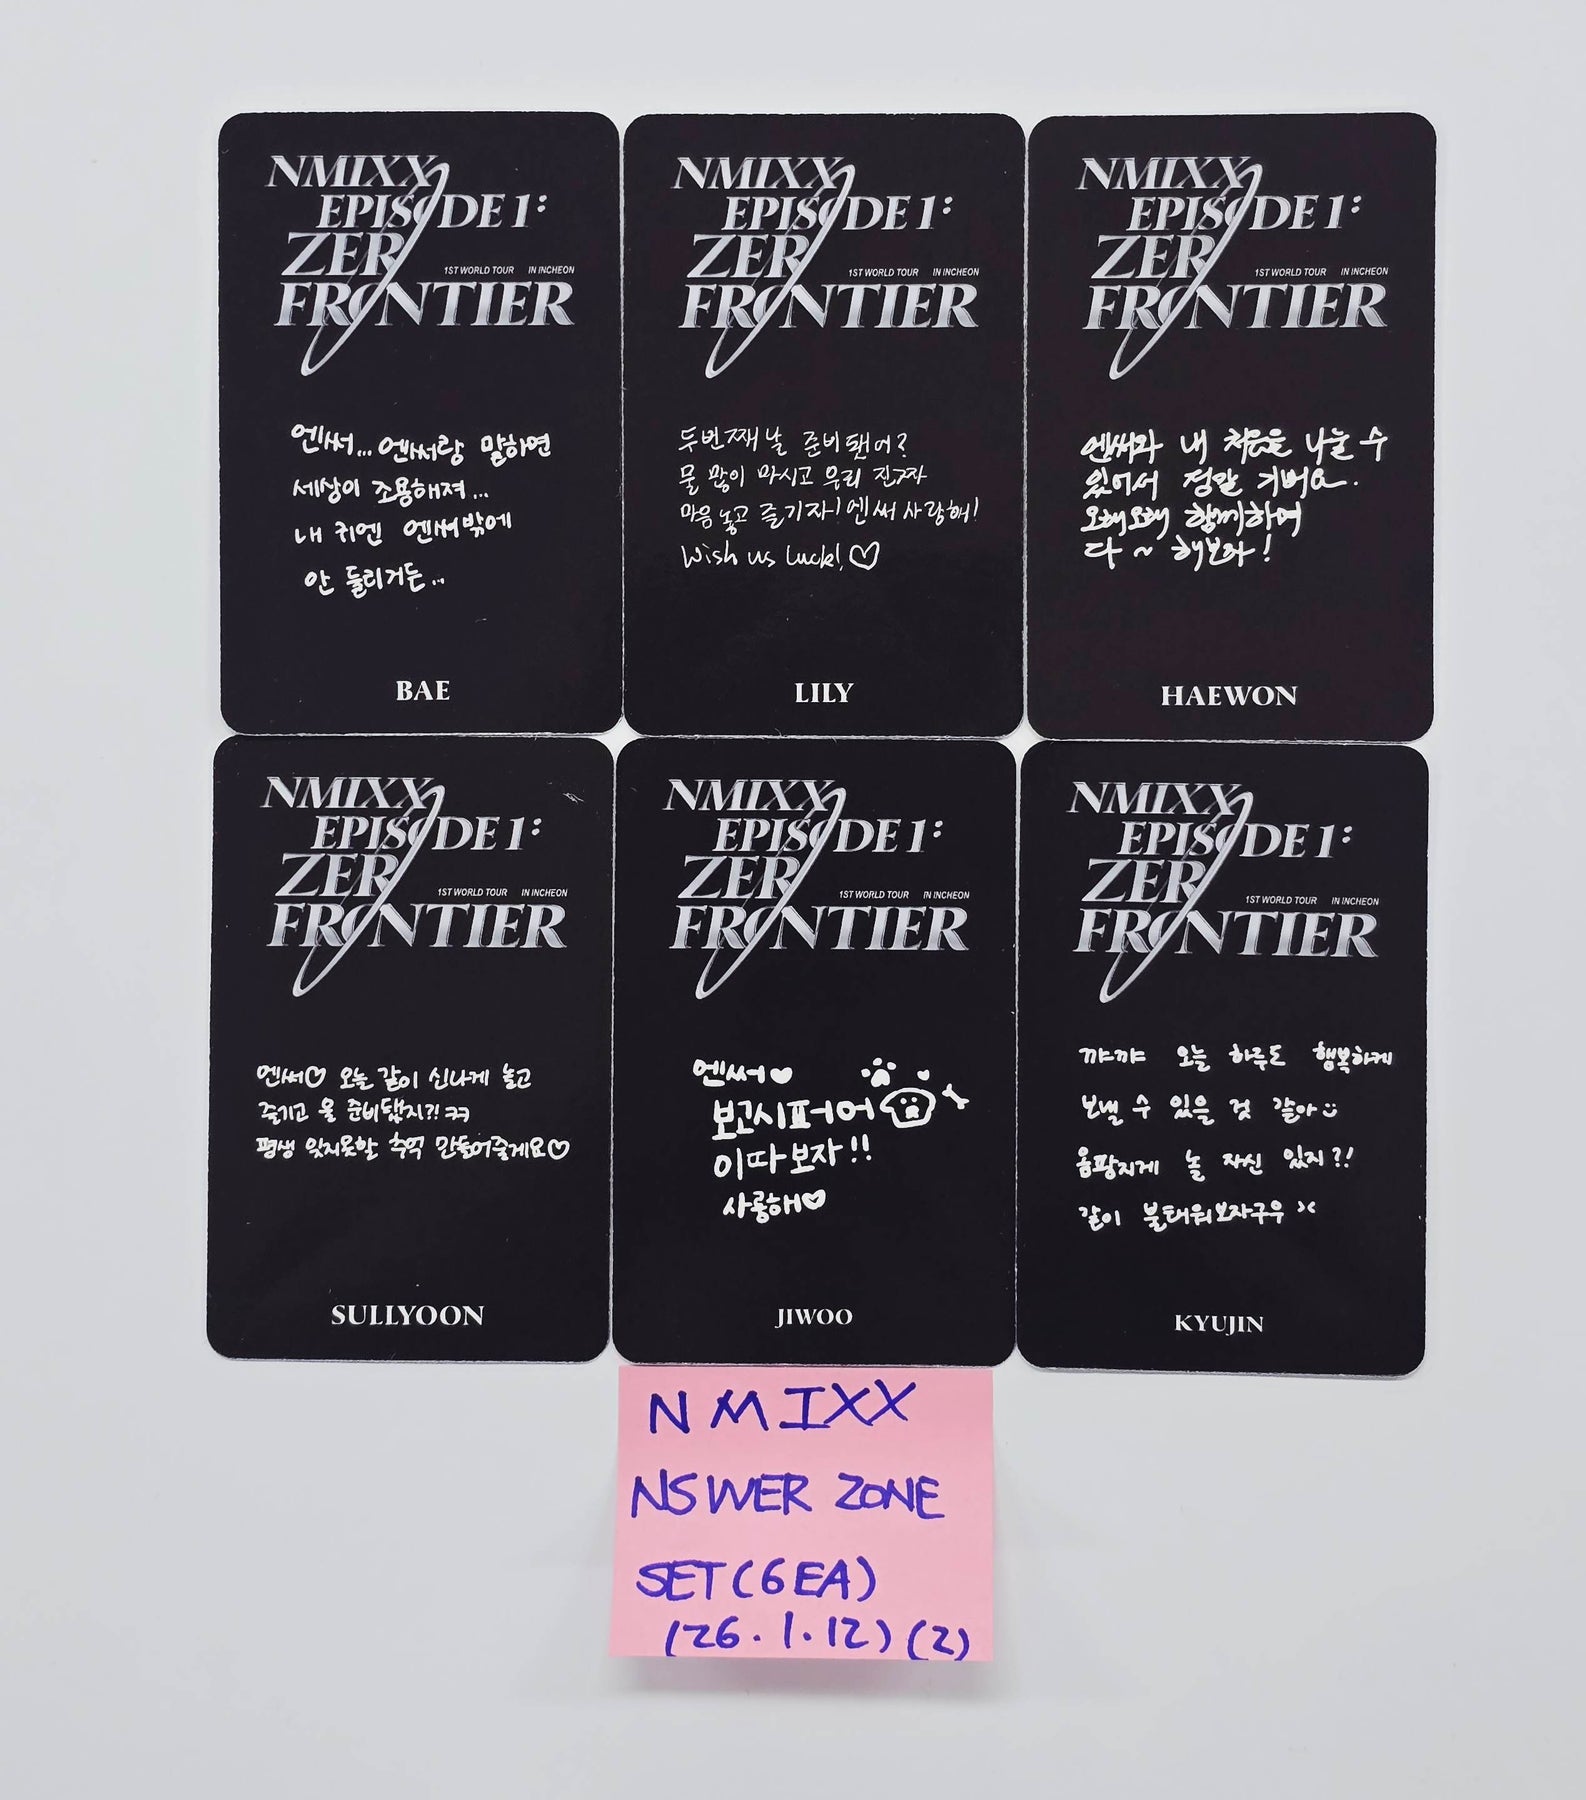 NMIXX
EPISODE 1:
ZERO
1ST WORLD TOUR IN INCHEON
FRONTIER
엔써... 엔써랑 말하면
세상이 조용해져...
내 귀엔 엔써밖에
안 들리거든...
BAE
NMIXX
EPISODE 1:
ZERO
1ST WORLD TOUR IN INCHEON
FRONTIER
두번째 날 준비됐어?
물 많이 마시고 우리 진짜
마음 놓고 즐기자! 엔써 사랑해!
Wish us luck! ♡
LILY
NMIXX
EPISODE 1:
ZERO
1ST WORLD TOUR IN INCHEON
FRONTIER
엔써와 내 처음을 나눌 수
있어서 정말 기뻐요.
오래오래 함께하여
다 ~ 해보자!
HAEWON
NMIXX
EPISODE 1:
ZERO
1ST WORLD TOUR IN INCHEON
FRONTIER
엔써♡ 오늘 같이 신나게 놀고
즐기고 올 준비됐지?! ㅋㅋ
평생 잊지못할 추억 만들어줄게요♡
SULLYOON
NMIXX
EPISODE 1:
ZERO
1ST WORLD TOUR IN INCHEON
FRONTIER
엔써♥
보고시퍼어
이따 보자!!
사룽해♥
JIWOO
NMIXX
EPISODE 1:
ZERO
1ST WORLD TOUR IN INCHEON
FRONTIER
꺄꺄 오늘 하루도 행복하게
보낼 수 있을 것 같아
음팡지게 놀 자신 있지?!
같이 불태워보자구우 ><
KYUJIN
NMIXX
NSWER ZONE
SET(6EA)
(26.1.12)(2)